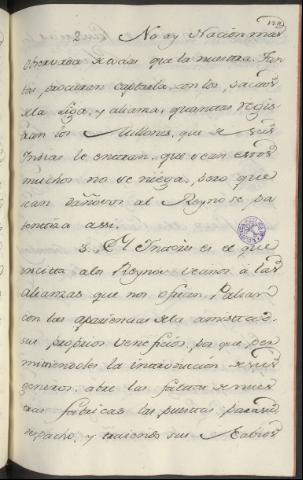 2. No ay Nacion mas
observada de todas que la nuestra. Tan
tas procuran captarla con los pactos
de la Liga, y alianza, quantas regis
tran los Millones, que de sus
Indias le entran, que sean estos
muchos no se niega, pero que
sean dañosos al Reyno se pa
tentiza assi.
3. El Interes es el que
incita a los Reynos vecinos á las
alianzas que nos ofrecen. Palian
con las apariencias de la amistad
sus proprios veneficios, por que per
mitiendoles la introducción de sus
generos, abre la falta de nues
tras fabricas las puertas para su
despacho, y trahiendo sus